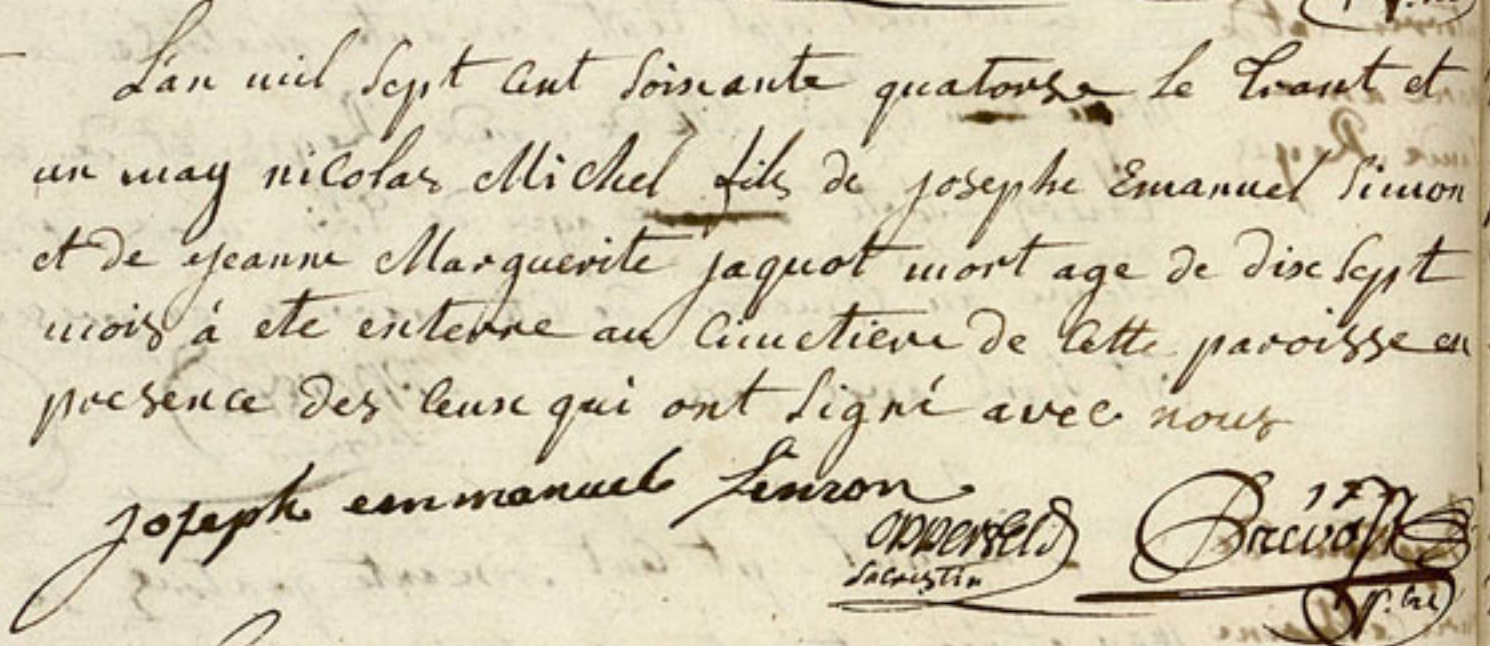 L'an mil sept cent soixante quatorse le trant et
un may nicolas Michel fils de josephe Emanuel Simon
et de jeanne Marguerite jaquot mort age de dix sept
mois à ete enterre au cimetiere de cette paroisse en
presence des ceux qui ont signé avec nous
joseph emmanuel simon
oppersfeld
sacristin